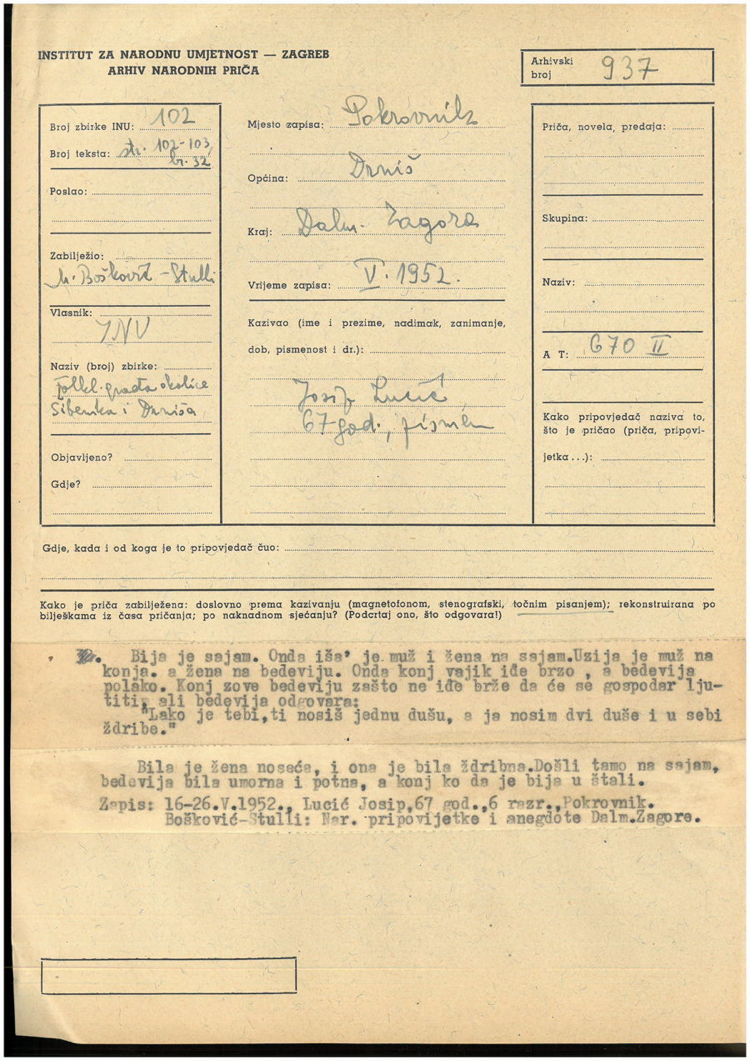 INSTITUT ZA NARODNU UMJETNOST — ZAGREB
ARHIV NARODNIH PRIČA
Arhivski
broj 937
Broj zbirke INU: 102
Broj teksta: str. 102-103,
br. 32
Poslao:
Zabilježio:
M. Bošković-Stulli
Vlasnik:
INU
Naziv (broj) zbirke:
Folkl. građa okolice
Šibenika i Drniša
Objavljeno?
Gdje?
Mjesto zapisa: Pokrovnik
Općina: Drniš
Kraj: Dalm. Zagora
Vrijeme zapisa: V. 1952.
Kazivao (ime i prezime, nadimak, zanimanje,
dob, pismenost i dr.):
Josip Lucić
67 god., pismen
Priča, novela, predaja:
Skupina:
Naziv:
A T: 670 II
Kako pripovjedač naziva to,
što je pričao (priča, pripovi-
jetka...):
Gdje, kada i od koga je to pripovjedač čuo:
Kako je priča zabilježena: doslovno prema kazivanju (magnetofonom, stenografski, točnim pisanjem); rekonstruirana po
bilješkama iz časa pričanja; po naknadnom sjećanju? (Podcrtaj ono, što odgovara!)
Bija je sajam. Onda iša' je muž i žena na sajam.Uzija je muž na
konja. a žena na bedeviju. Onda konj vajik iđe brzo , a bedevija
polako. Konj zove bedeviju zašto ne iđe brže da će se gospodar lju-
titi, ali bedevija odgovara:
"Lako je tebi,ti nosiš jednu dušu, a ja nosim dvi duše i u sebi
ždribe."
Bila je žena noseća, i ona je bila ždribna.Došli tamo na sajam,
bedevija bila umorna i potna, a konj ko da je bija u štali.
Zapis: 16-26.V.1952., Lucić Josip,67 god.,6 razr.,Pokrovnik.
Bošković-Stulli: Nar. pripovijetke i anegdote Dalm.Zagore.